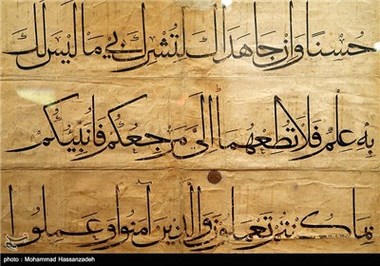 حُسْنًا وَاِنْ جَاهَدَاكَ لِتُشْرِكَ بِي مَا لَيْسَ لَكَ
بِهِ عِلْمٌ فَلَا تُطِعْهُمَا اِلَىَّ مَرْجِعُكُمْ فَاُنَبِّئُكُمْ
بِمَا كُنْتُمْ تَعْمَلُونَ وَالَّذِينَ آمَنُوا وَعَمِلُوا
photo : Mohammad Hassanzadeh